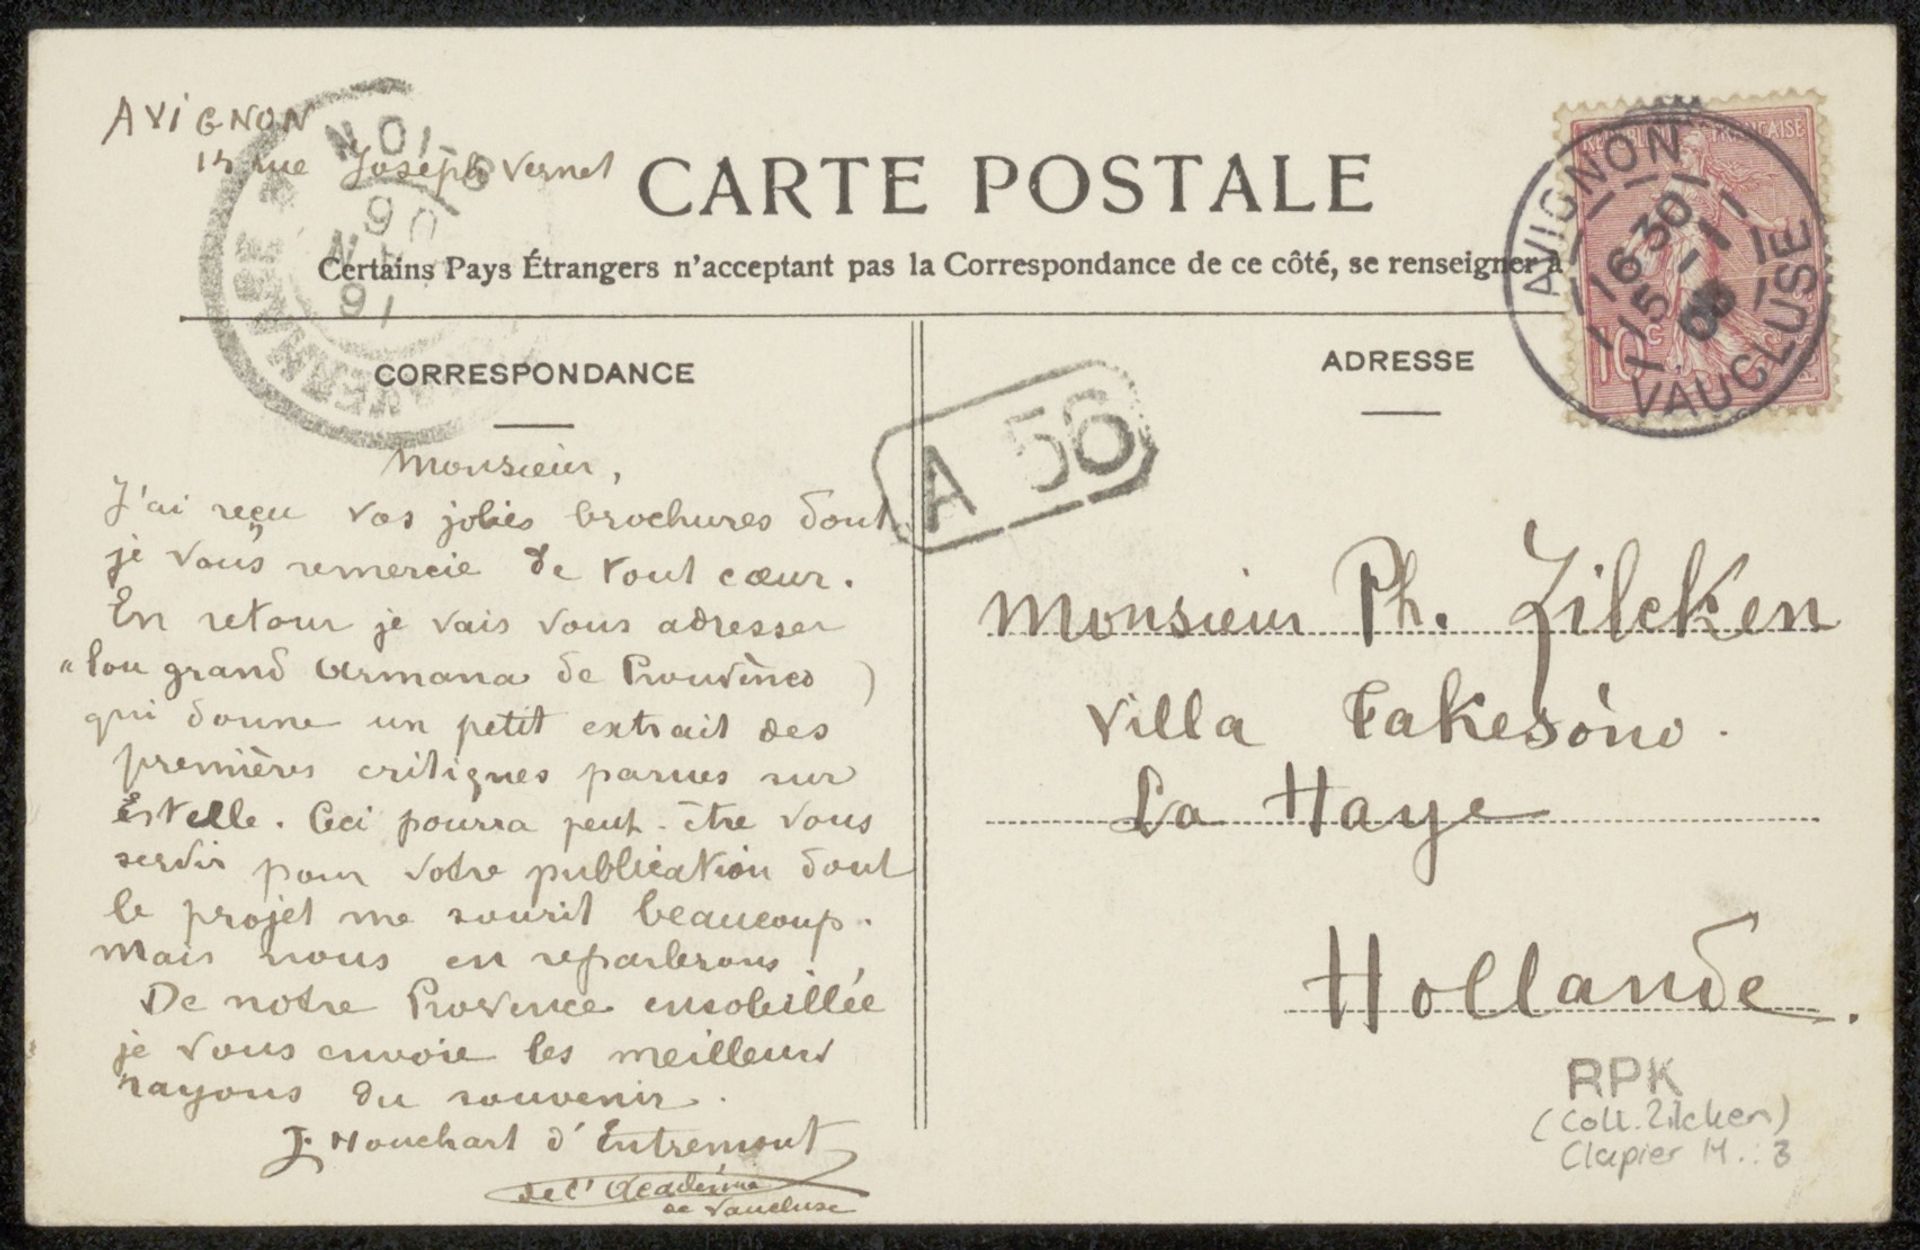 AVIGNON
rue Joseph Vernet
CARTE POSTALE
Certains Pays Étrangers n'acceptent pas la Correspondance de ce côté, se renseigner à
CORRESPONDANCE
Monsieur,
J'ai reçu vos jolies brochures dont
je vous remercie de tout cœur.
En retour je vais vous adresser
"lou grand Armana de Prouvènço)
qui donne un petit extrait des
premières critiques parues sur
Estelle. Ceci pourra peut-être vous
servir pour votre publication dont
le projet me sourit beaucoup.
Mais nous en reparlerons.
De notre Provence ensoleillée
je vous envoie les meilleurs
rayons du souvenir.
J. Houchart d'Entremont
de l'Académie
de Vaucluse
ADRESSE
REPUBLIQUE FRANÇAISE
10c
AVIGNON
16 30
15 - 1
VAUCLUSE
A 56
Monsieur Ph. Zilcken
Villa
La Haye
Hollande.
RPK
(Coll. Zilcken)
Clapier M.: 3